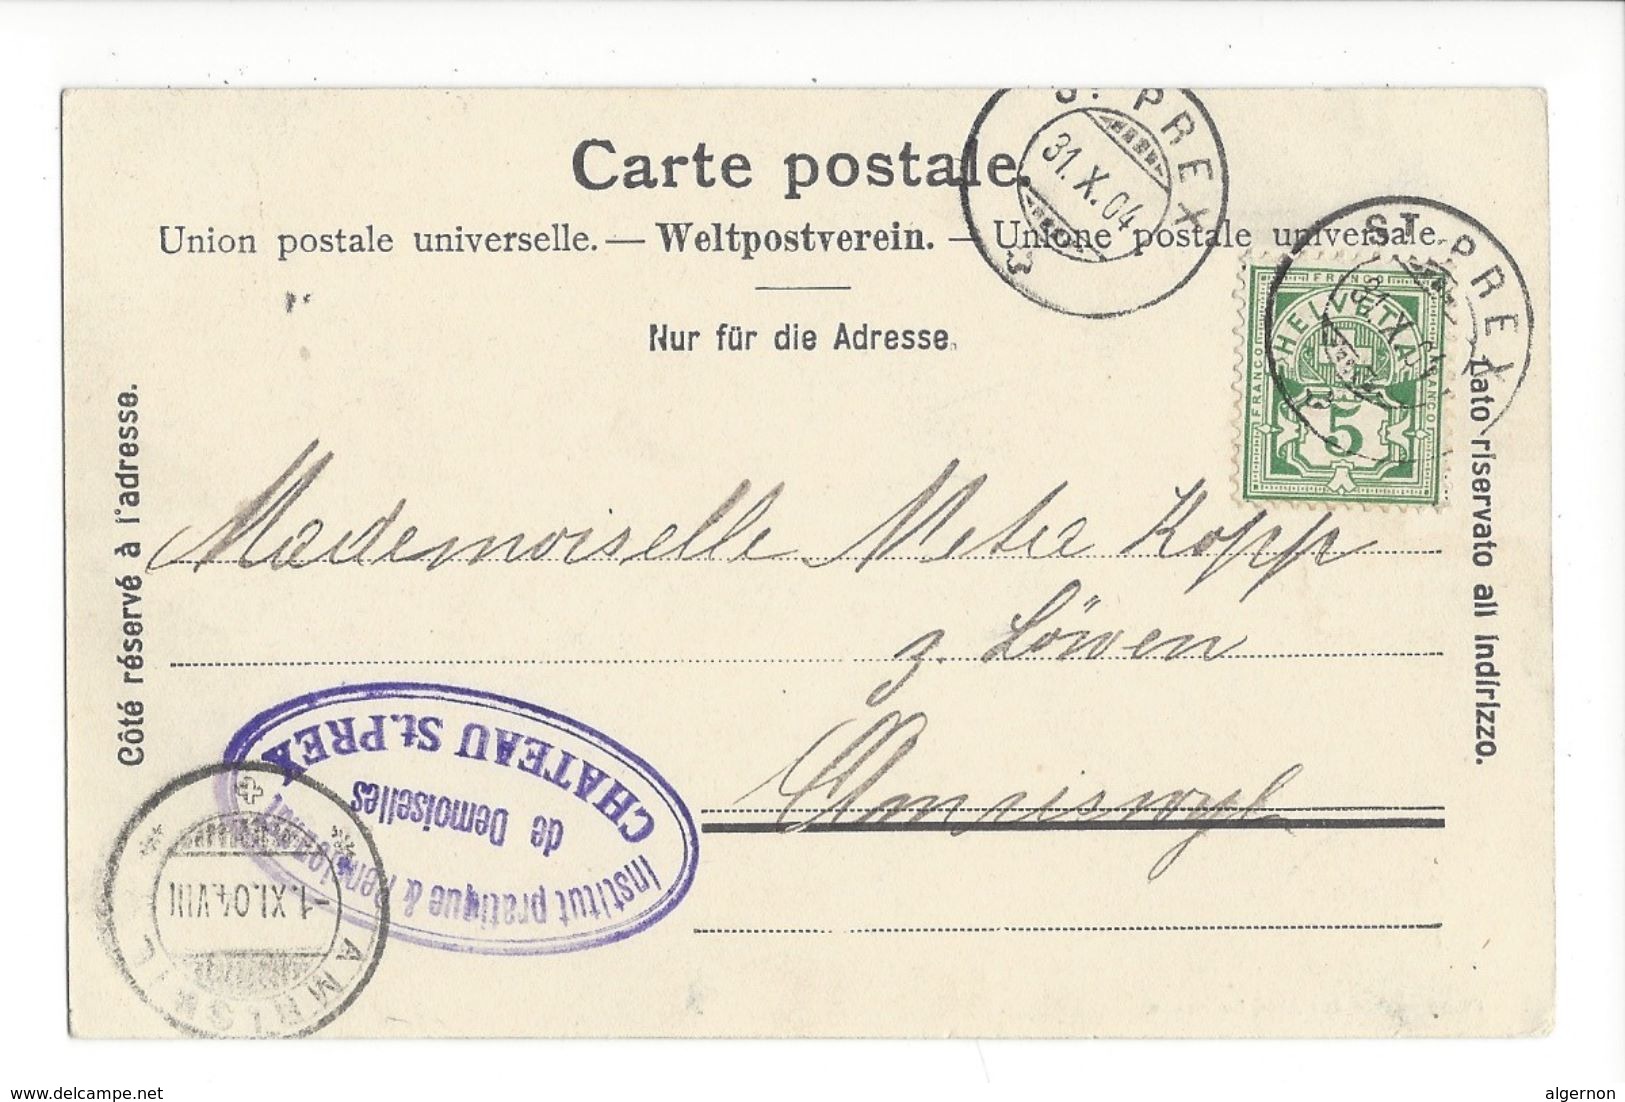 Carte postale.
Union postale universelle. — Weltpostverein. — Unione postale universale.
Nur für die Adresse.
Côté réservé à l'adresse.
Lato riservato all indirizzo.
ST. PREX
31.X.04
ST. PREX
31.X.04
FRANCO
FRANCO
FRANCO
HELVETIA
5
Mademoiselle Meta Kopp
z. Löwen
Amriswyl
Institut pratique & Pensionnat
de Demoiselles
CHATEAU St. PREX
AMRISWIL
-1.XI.04.VIII
www.delcampe.net
algernon